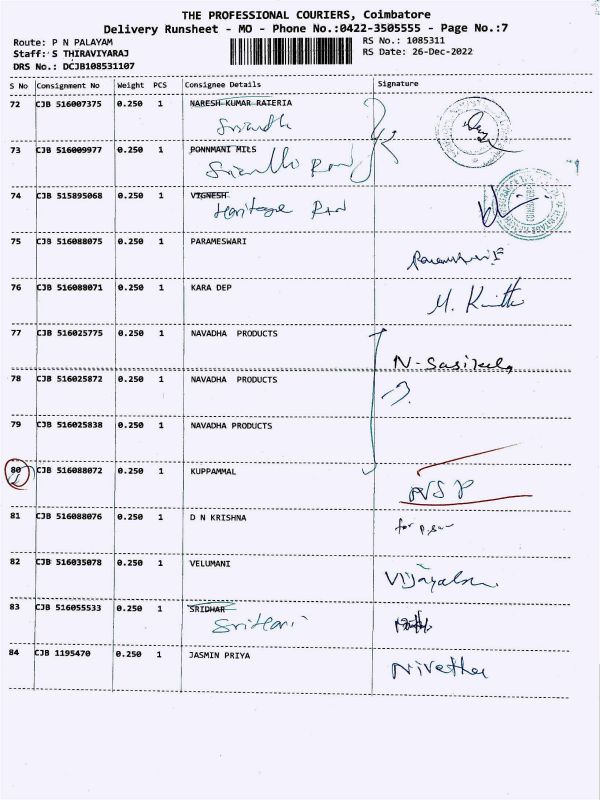 THE PROFESSIONAL COURIERS, Coimbatore
Delivery Runsheet - MO - Phone No.:0422-3505555 - Page No.:7
Route: P N PALAYAM
RS No.: 1085311
Staff: S THIRAVIYARAJ
RS Date: 26-Dec-2022
DRS No.: DCJB108531107
S No Consignment No Weight PCS Consignee Details Signature
72 CJB 516007375 0.250 1 NARESH KUMAR RATERIA
73 CJB 516009977 0.250 1 PONNMANI MILS
74 CJB 515895068 0.250 1 VIGNESH
Heritage
75 CJB 516088075 0.250 1 PARAMESWARI
76 CJB 516088071 0.250 1 KARA DEP
77 CJB 516025775 0.250 1 NAVADHA PRODUCTS
78 CJB 516025872 0.250 1 NAVADHA PRODUCTS
79 CJB 516025838 0.250 1 NAVADHA PRODUCTS
80 CJB 516088072 0.250 1 KUPPAMMAL
81 CJB 516088076 0.250 1 D N KRISHNA
for
82 CJB 516035078 0.250 1 VELUMANI
83 CJB 516055533 0.250 1 SRIDHAR
SriHari
84 CJB 1195470 0.250 1 JASMIN PRIYA
Nivetha